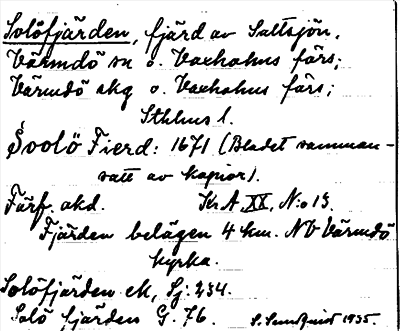 Solöfjärden, fjärd av Saltsjön,
Värmdö sn o. Vaxholms förs;
Värmdö skg o. Vaxholms förs;
Sthlms l.
Soolö Fierd: 1671 (Bladet samman-
satt av kopior).
Färf. akd. Kr.A. XX, N:o 13.
Fjärden belägen 4 km. NV Värmdö
kyrka.
Solöfjärden ek, Sj: 234.
Solö fjärden G. 76. S. Sundquist 1935.